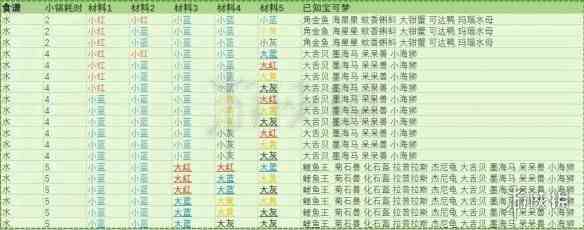 食谱 小锅耗时 材料1 材料2 材料3 材料4 材料5 已知宝可梦
水 2 小红 小红 小蓝 小蓝 小蓝 角金鱼 海星星 蚊香蝌蚪 大钳蟹 可达鸭 玛瑙水母
水 2 小红 小红 小蓝 小蓝 小黄 角金鱼 海星星 蚊香蝌蚪 大钳蟹 可达鸭 玛瑙水母
水 2 小红 小红 小蓝 小蓝 小灰 角金鱼 海星星 蚊香蝌蚪 大钳蟹 可达鸭 玛瑙水母
水 4 小红 小红 小蓝 小蓝 大蓝 大舌贝 墨海马 呆呆兽 小海狮
水 4 小红 小蓝 小蓝 大红 大舌贝 墨海马 呆呆兽 小海狮
水 4 小红 小蓝 小蓝 大黄 大舌贝 墨海马 呆呆兽 小海狮
水 4 小红 小蓝 小蓝 大灰 大舌贝 墨海马 呆呆兽 小海狮
水 4 小蓝 小蓝 小蓝 小黄 大红 大舌贝 墨海马 呆呆兽 小海狮
水 4 小蓝 小蓝 小蓝 小黄 大黄 大舌贝 墨海马 呆呆兽 小海狮
水 4 小蓝 小蓝 小蓝 小黄 大灰 大舌贝 墨海马 呆呆兽 小海狮
水 4 小蓝 小蓝 小蓝 小灰 大红 大舌贝 墨海马 呆呆兽 小海狮
水 4 小蓝 小蓝 小蓝 小灰 大黄 大舌贝 墨海马 呆呆兽 小海狮
水 4 小蓝 小蓝 小蓝 小灰 大灰 大舌贝 墨海马 呆呆兽 小海狮
水 5 小蓝 小蓝 大红 大红 大蓝 鲤鱼王 菊石兽 化石盔 拉普拉斯 杰尼龟 大舌贝 墨海马 呆呆兽 小海狮
水 5 小蓝 小蓝 大红 大黄 鲤鱼王 菊石兽 化石盔 拉普拉斯 杰尼龟 大舌贝 墨海马 呆呆兽 小海狮
水 5 小蓝 小蓝 大红 大蓝 大灰 鲤鱼王 菊石兽 化石盔 拉普拉斯 杰尼龟 大舌贝 墨海马
水 5 小蓝 小蓝 大蓝 大黄 鲤鱼王 菊石兽 化石盔 拉普拉斯 杰尼龟 大舌贝 墨海马
水 5 小蓝 小蓝 大蓝 大黄 鲤鱼王 菊石兽 化石盔 拉普拉斯 杰尼龟 大舌贝 墨海马 呆呆兽 小海狮
水 5 小蓝 小蓝 大蓝 大灰 鲤鱼王 菊石兽 化石盔 拉普拉斯 杰尼龟 大舌贝 墨海马 呆呆兽 小海狮